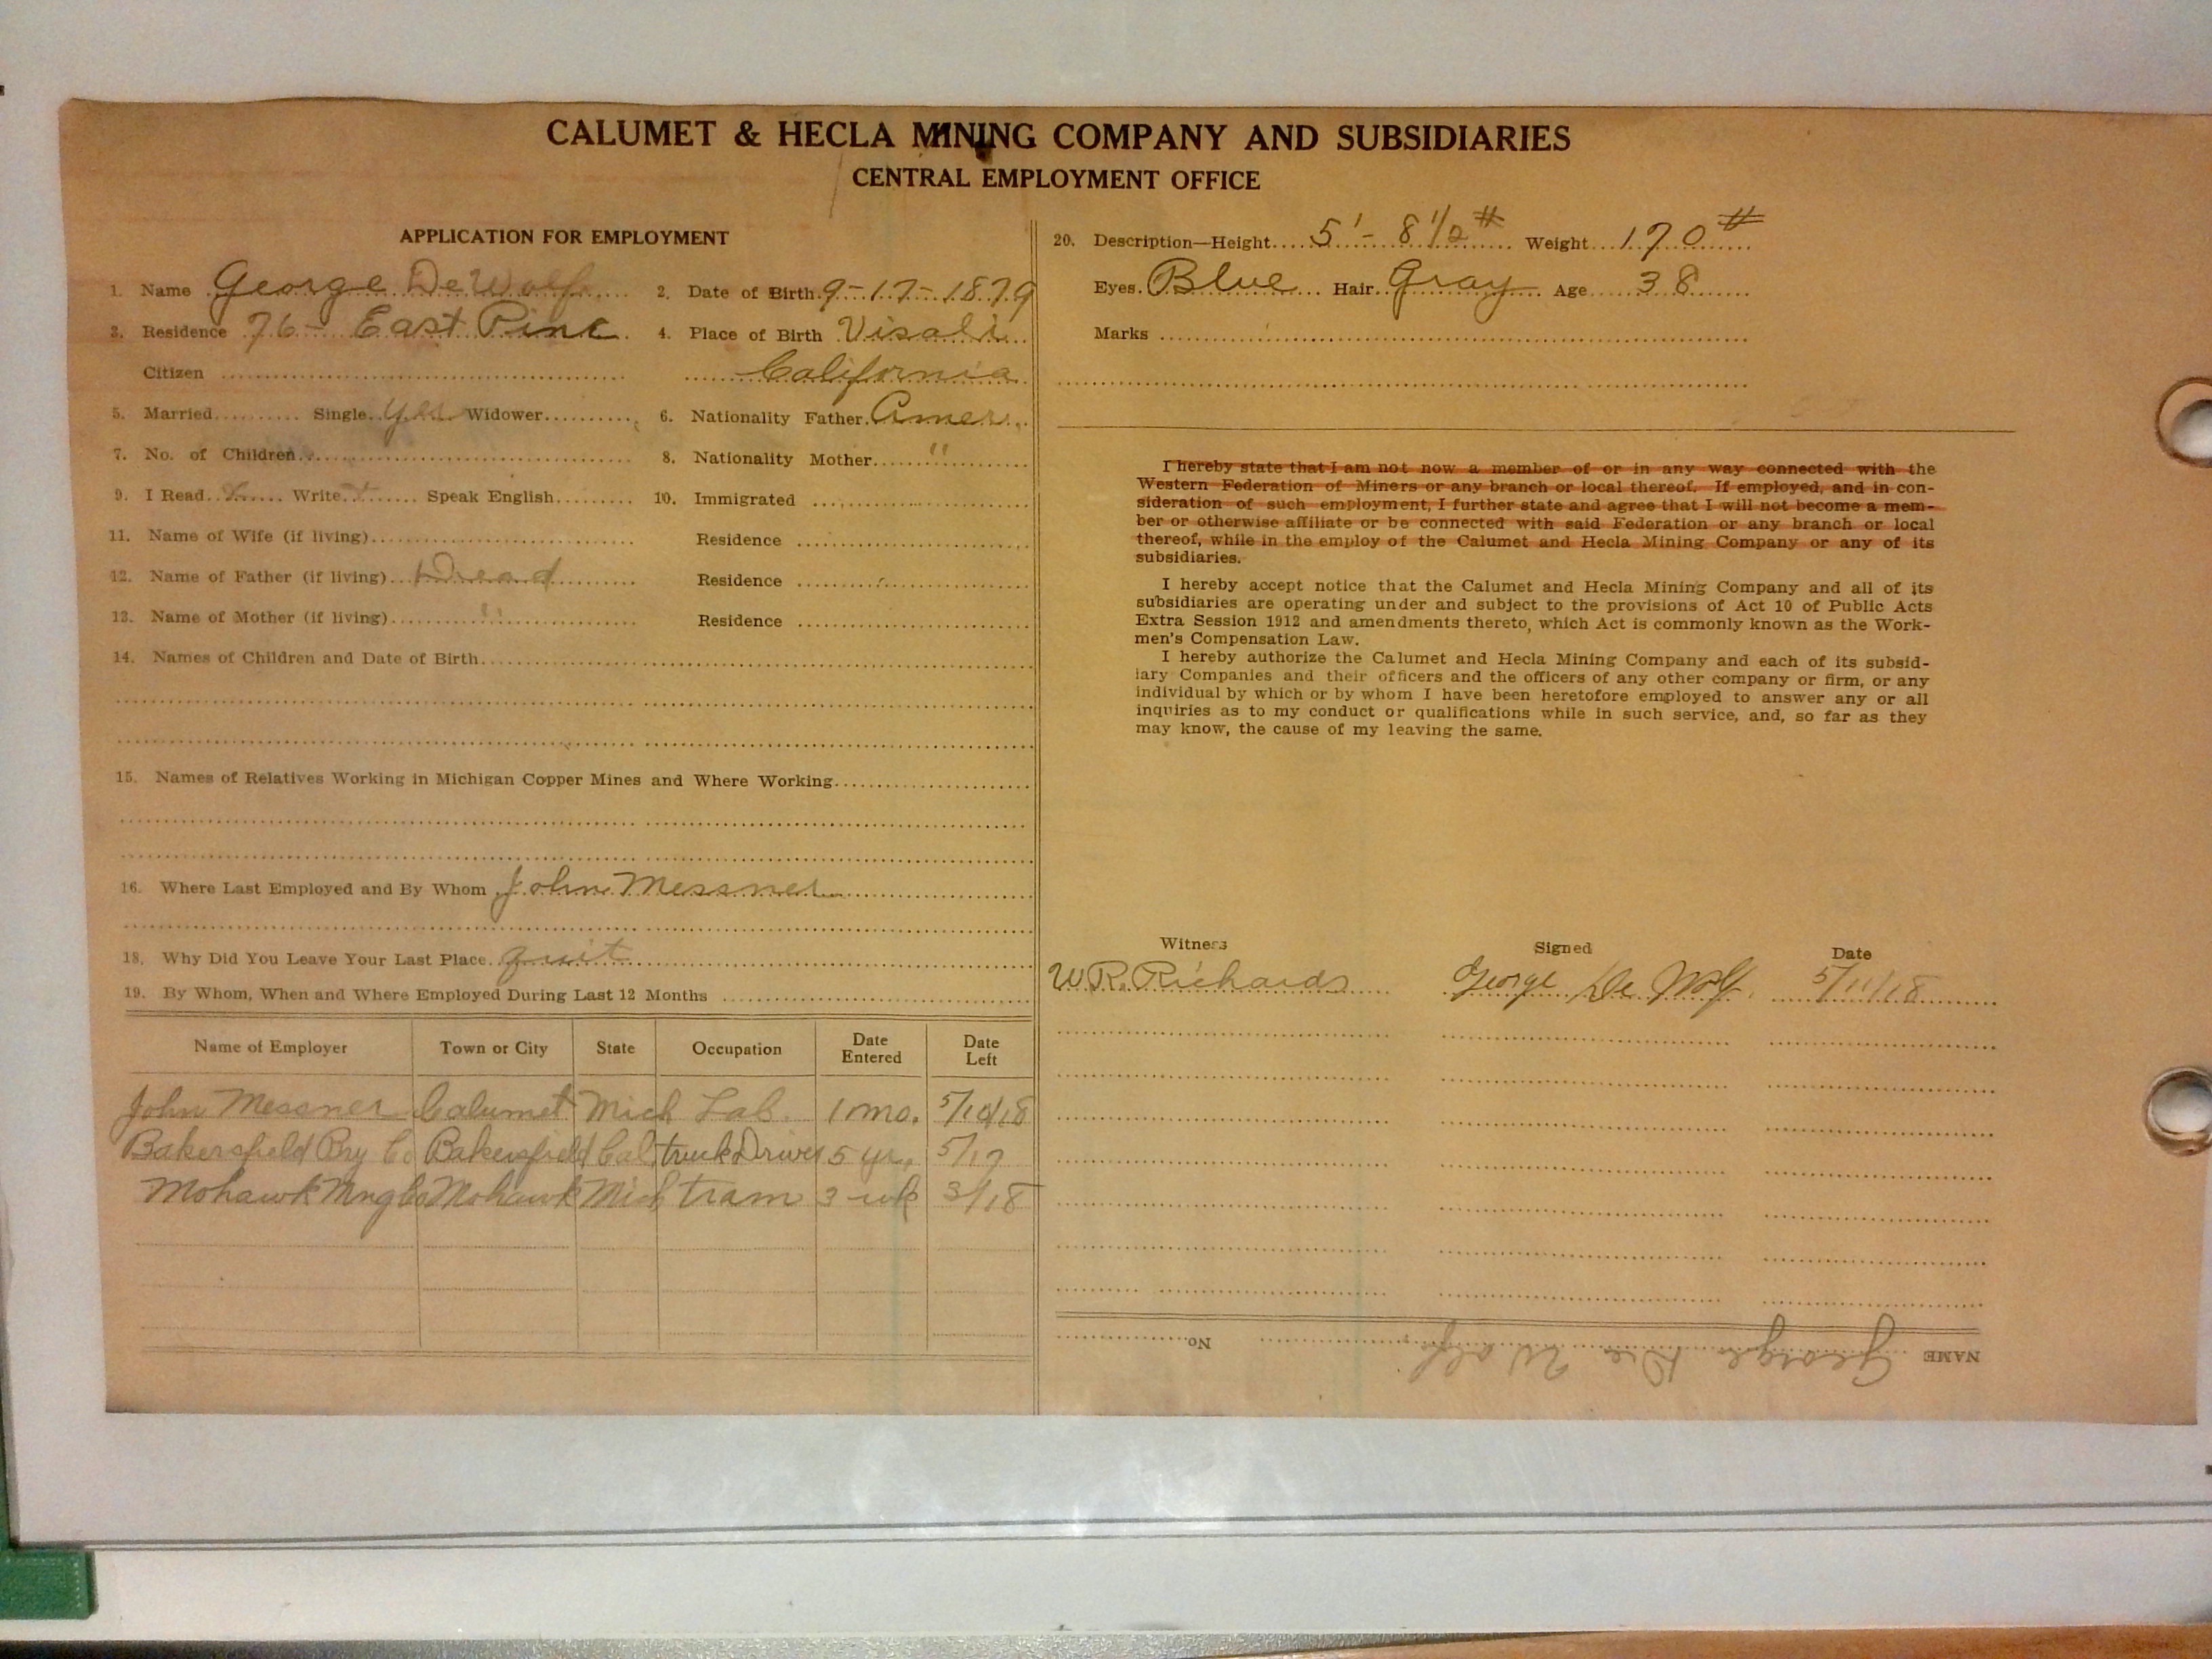 CALUMET & HECLA MINING COMPANY AND SUBSIDIARIES
CENTRAL EMPLOYMENT OFFICE
APPLICATION FOR EMPLOYMENT
1. Name George DeWolf 2. Date of Birth 9-17-1879
3. Residence 76 - East Pine 4. Place of Birth Visali
Citizen California
5. Married Single yes Widower 6. Nationality Father Amer.
7. No. of Children 8. Nationality Mother "
9. I Read Write Speak English 10. Immigrated
11. Name of Wife (if living) Residence
12. Name of Father (if living) Dead Residence
13. Name of Mother (if living) " Residence
14. Names of Children and Date of Birth
15. Names of Relatives Working in Michigan Copper Mines and Where Working
16. Where Last Employed and By Whom John Messner
18. Why Did You Leave Your Last Place quit
19. By Whom, When and Where Employed During Last 12 Months
Name of Employer Town or City State Occupation Date Entered Date Left
John Messner Calumet Mich Lab. 1 mo. 5/10/18
Bakersfield Co Bakersfield Cal truck Driver 5 yr. 5/17
Mohawk Mng Co Mohawk Mich tram 3 wk 3/18
20. Description—Height 5'- 8 1/2 # Weight 170 #
Eyes Blue Hair Gray Age 38
Marks
I hereby state that I am not now a member of or in any way connected with the
Western Federation of Miners or any branch or local thereof. If employed, and in con-
sideration of such employment, I further state and agree that I will not become a mem-
ber or otherwise affiliate or be connected with said Federation or any branch or local
thereof, while in the employ of the Calumet and Hecla Mining Company or any of its
subsidiaries.
I hereby accept notice that the Calumet and Hecla Mining Company and all of its
subsidiaries are operating under and subject to the provisions of Act 10 of Public Acts
Extra Session 1912 and amendments thereto, which Act is commonly known as the Work-
men's Compensation Law.
I hereby authorize the Calumet and Hecla Mining Company and each of its subsid-
iary Companies and their officers and the officers of any other company or firm, or any
individual by which or by whom I have been heretofore employed to answer any or all
inquiries as to my conduct or qualifications while in such service, and, so far as they
may know, the cause of my leaving the same.
Witness Signed Date
W.R. Richards George De Wolf 5/11/18
NAME George De Wolf No.